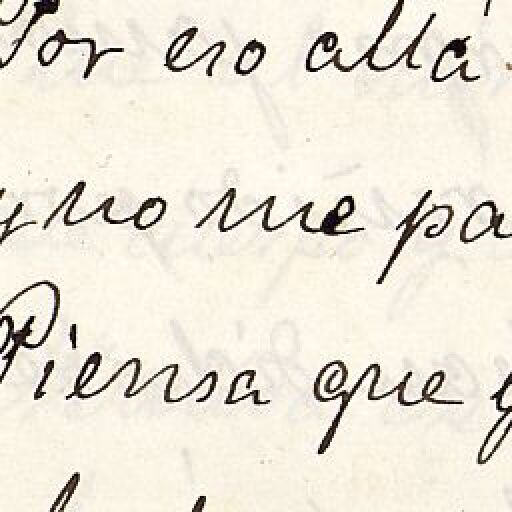 Por eso allá
y no me pa
Piensa que y